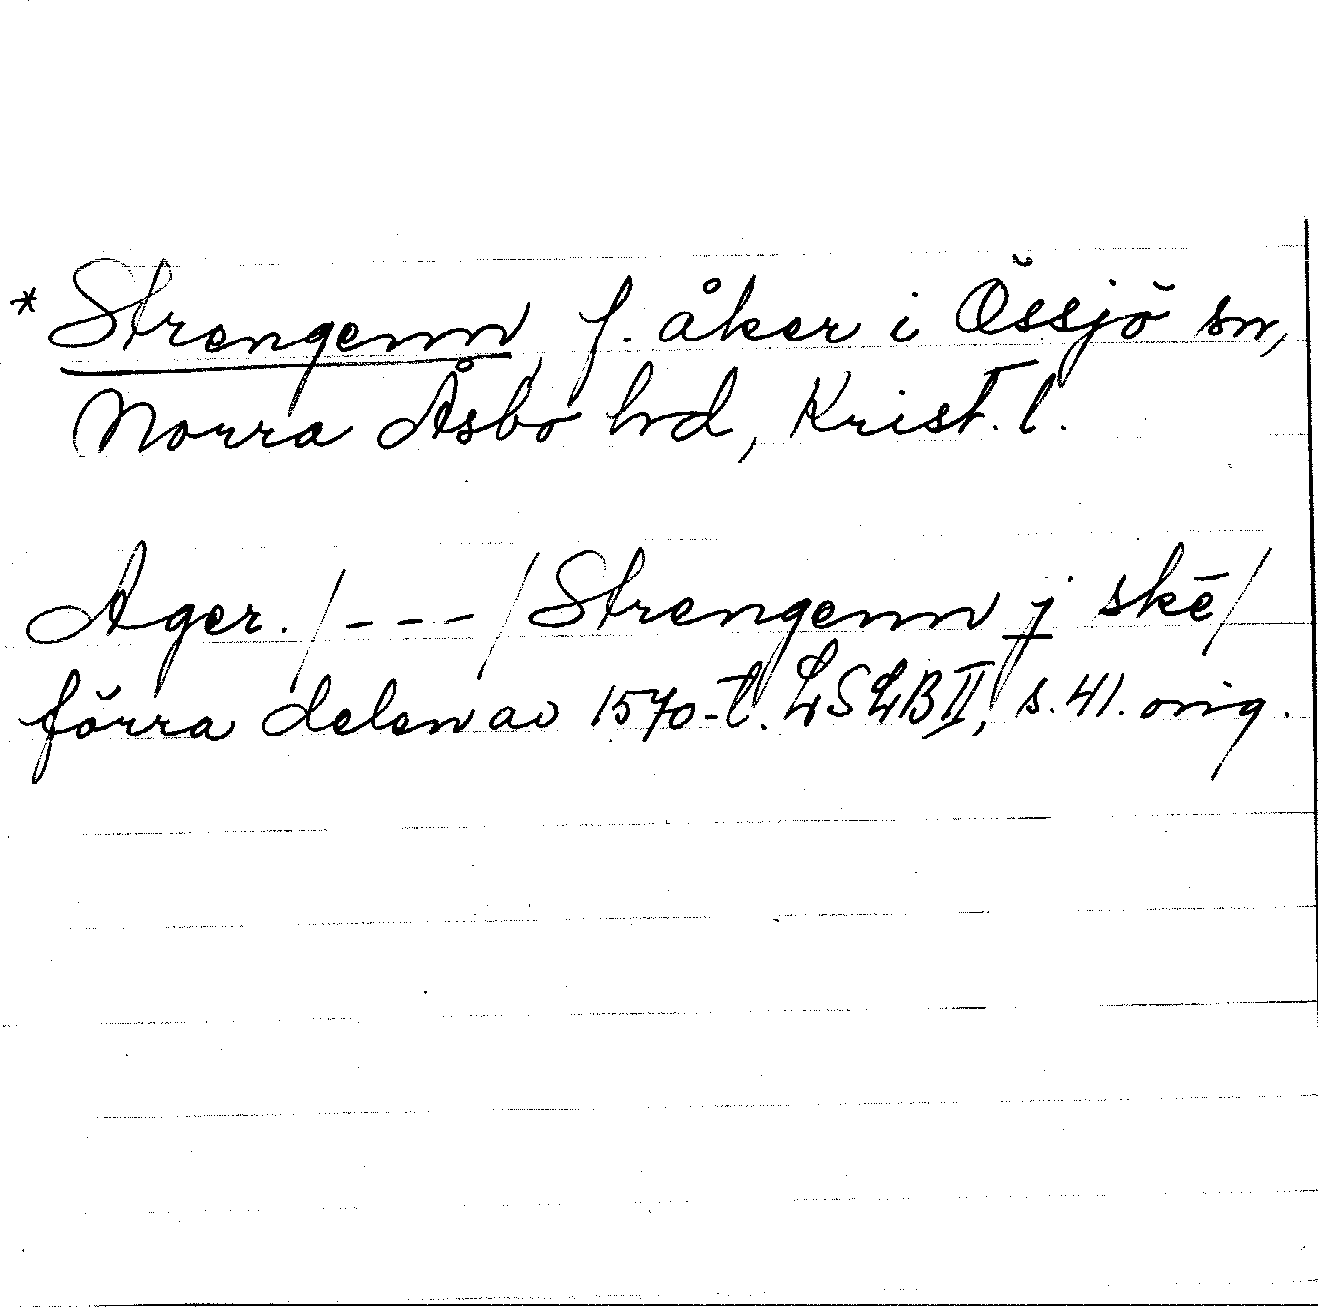 * Strengenn, f. åker i Össjö sn,
Norra Åsbo hd, Krist. l.
Ager. /---/ Strengenn j skē/
förra delen av 1570-t. LSLB II, s. 41. orig.